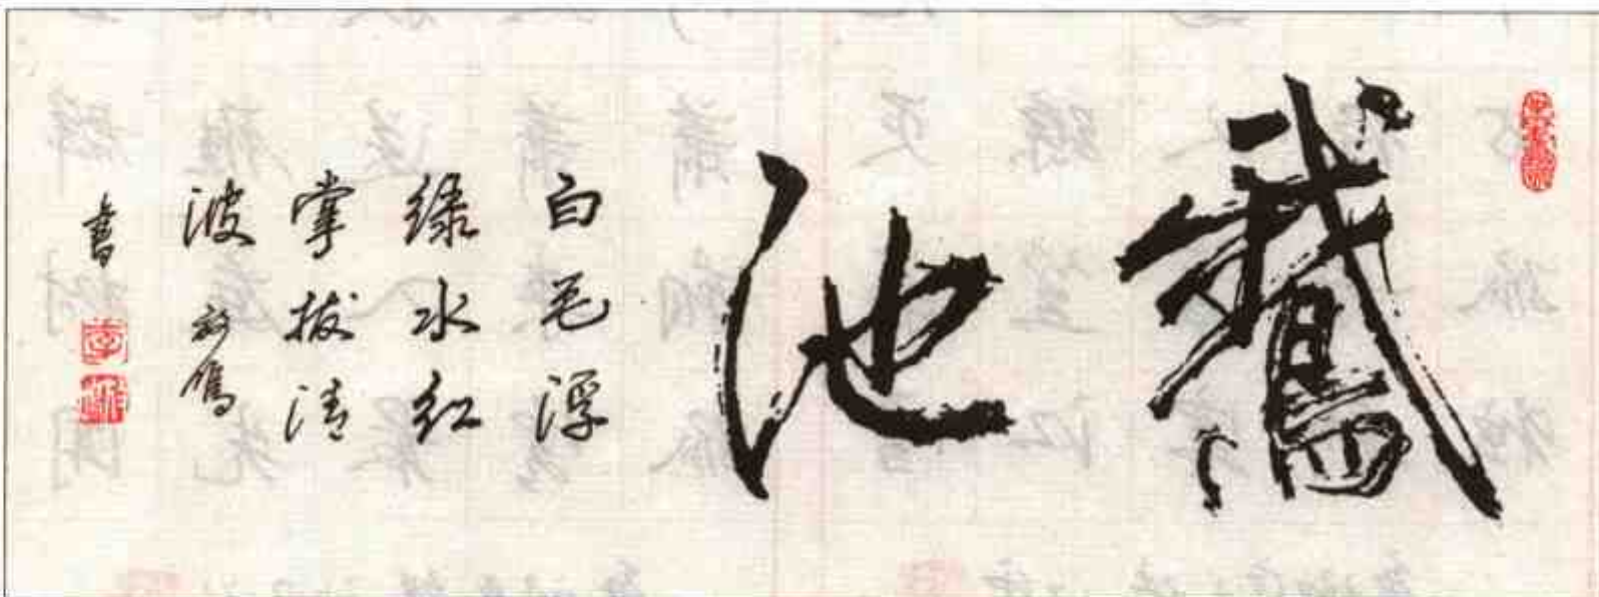 鵞池
白毛浮
绿水红
掌拨清
波
書